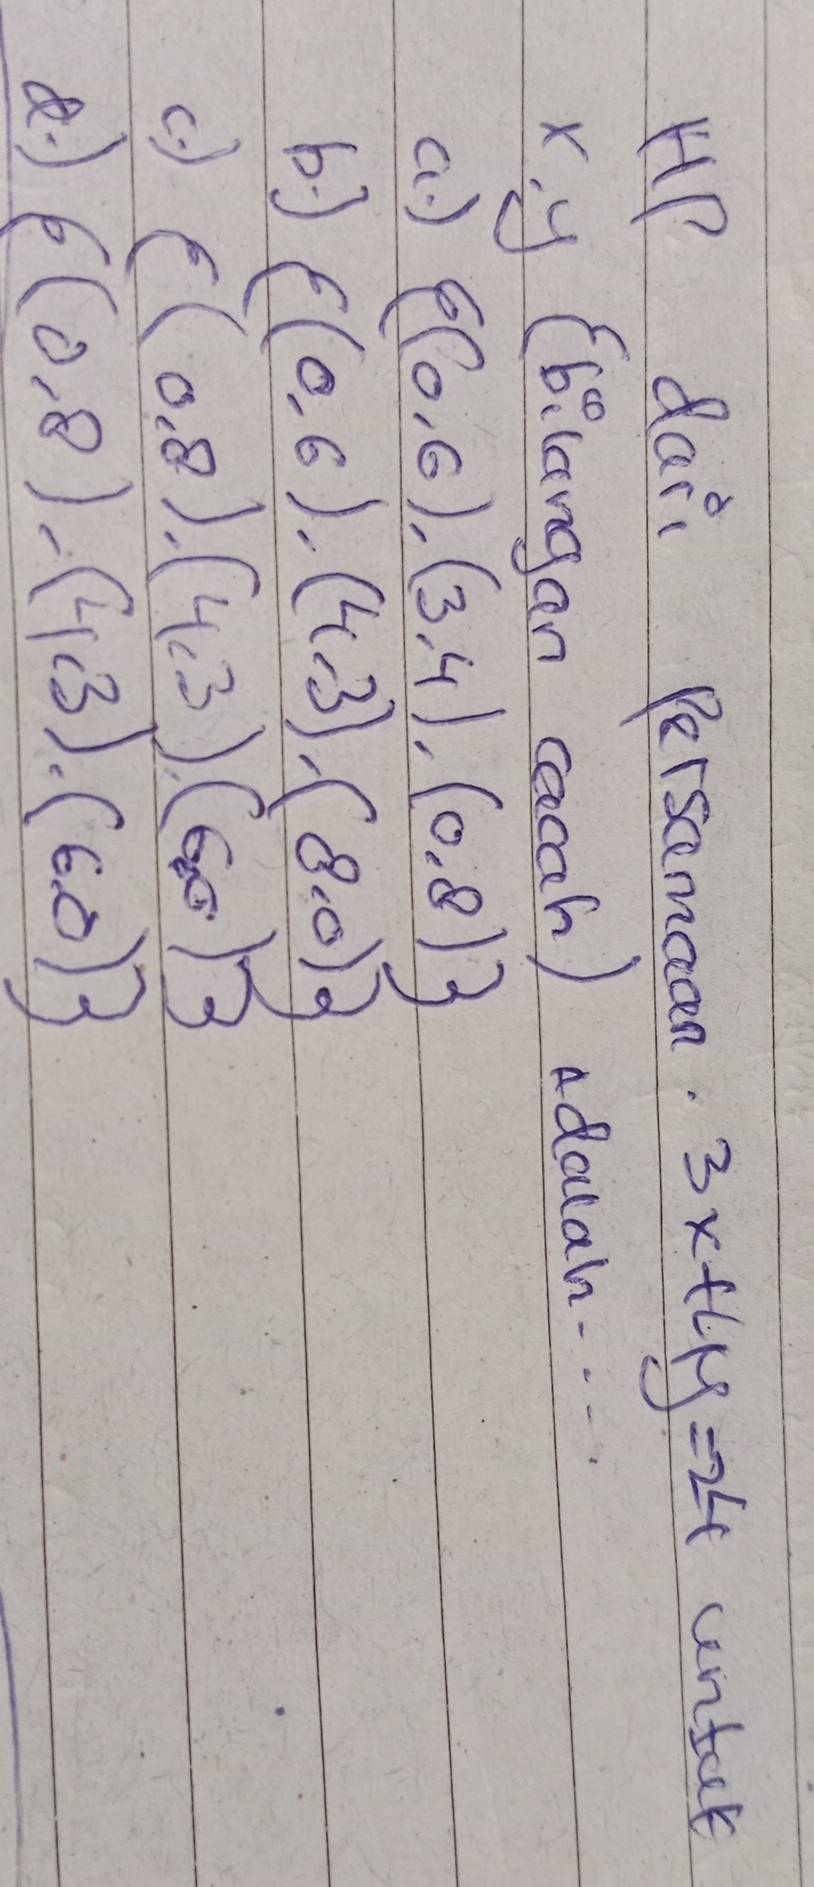 HP dari Persamaan. 3x+4y=24 untuk
x,y (bilangan cacah) adalah....
a.) {(0,6),(3,4),(0,8)}
b.) {(0,6),(4,3),(8,0)}
c.) {(0,8),(4,3),(6,0)}
d.) {(0,8),(4,3),(6,0)}